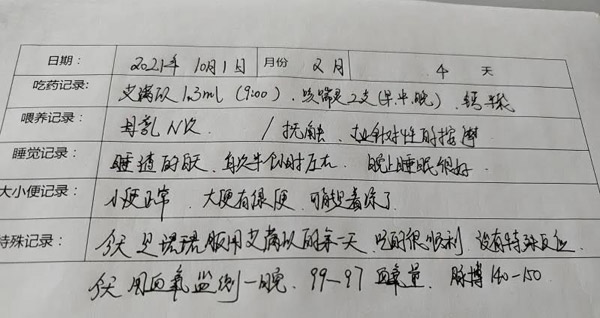 日期： 2021年 10月1日 月份 2月 4 天
吃药记录: 艾满欣 1.3ml (9:00)、咳喘灵2支(早.中.晚)、钙
喂养记录： 母乳N次 / 抚触、 针对性的按摩
睡觉记录： 睡 的 每次半个小时左右 晚上睡眠很好
大小便记录： 小便正常， 大便有很 可能是着凉了
特殊记录： 今天是 服用艾满欣的第一天，吃的很顺利，没有特殊反应.
今天用血氧监测一晚、99—97 血氧量、脉搏140-150